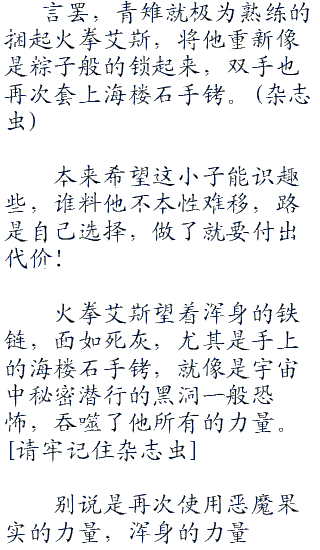 言罢，青雉就极为熟练的
捆起火拳艾斯，将他重新像
是粽子般的锁起来，双手也
再次套上海楼石手铐。(杂志
虫)
本来希望这小子能识趣
些，谁料他不本性难移，路
是自己选择，做了就要付出
代价！
火拳艾斯望着浑身的铁
链，面如死灰，尤其是手上
的海楼石手铐，就像是宇宙
中秘密潜行的黑洞一般恐
怖，吞噬了他所有的力量。
[请牢记住杂志虫]
别说是再次使用恶魔果
实的力量，浑身的力量